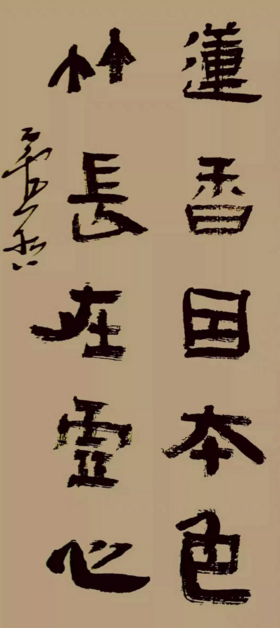 蓮香因本色
竹長在靈心